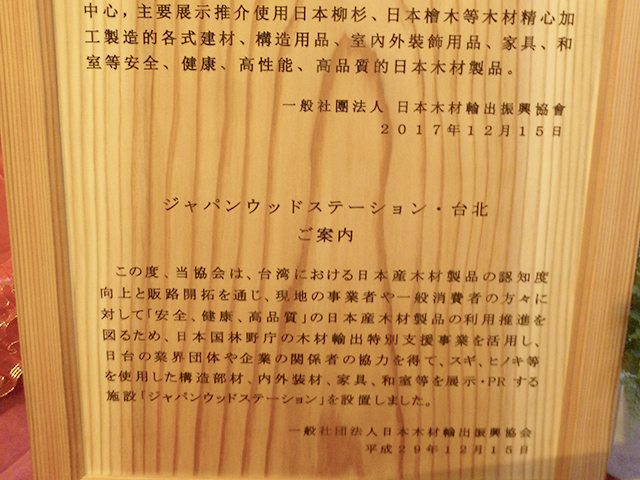 中心，主要展示推介使用日本柳杉、日本檜木等木材精心加
工製造的各式建材、構造用品、室內外裝飾用品、家具、和
室等安全、健康、高性能、高品質的日本木材製品。
一般社團法人 日本木材輸出振興協會
2017年12月15日
ジャパンウッドステーション・台北
ご案内
この度、当協会は、台湾における日本産木材製品の認知度
向上と販路開拓を通じ、現地の事業者や一般消費者の方々に
対して「安全、健康、高品質」の日本産木材製品の利用推進を
図るため、日本国林野庁の木材輸出特別支援事業を活用し、
日台の業界団体や企業の関係者の協力を得て、スギ、ヒノキ等
を使用した構造部材、内外装材、家具、和室等を展示・PRする
施設「ジャパンウッドステーション」を設置しました。
一般社団法人日本木材輸出振興協会
平成29年12月15日